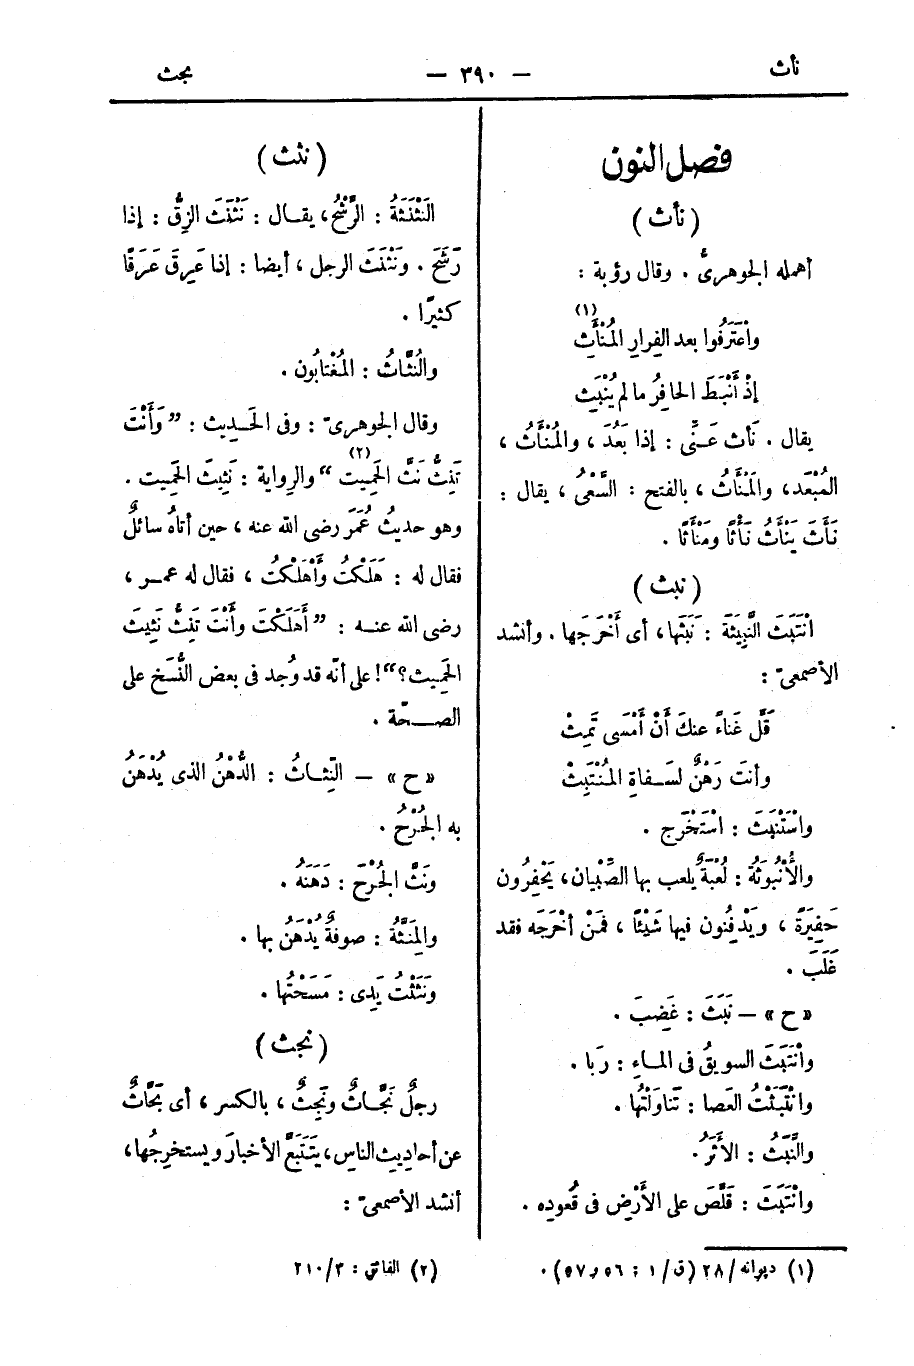 نأث
— ٣٩٠ —
نجث
فصل النون
(نأث)
أهمله الجوهرىُّ . وقال رؤبة :
واْعَترَفُوا بعد الفِرارِ المُنْأَثِ (١)
إذْ أَنْبَطَ الحافِرُ ما لم يُنْبَثِ
يقال . نَأَث عَنِّى : إذا بَعُدَ ، والمُنْأَثُ ،
المُبْعَد، والمَنْأَثُ ، بالفتح : السَّعْى ، يقال :
نَأَثَ يَنْأَثُ نَأْثًا ومَنْأَثًا .
(نبث)
انْتَبَثَ النَّبِيثَةَ : نَبَثَها، أى أَخْرَجَها . وأنشد
الأصمعىّ :
قَلَّ غَناءً عنكَ أنْ أَمْسَى تَمِثْ
وأنتَ رَهْنٌ لسَفاةِ المُنْتَبِثْ
واسْتَنْبَثَ : اسْتَخْرَج .
والأُنْبُوثَةُ : لُعْبَةٌ يلعب بها الصِّبْيان، يَحْفِرُون
حَفِيرَةً ، ويَدْفِنُون فيها شَيْئًا ، فمَنْ أخْرَجَه فقد
غَلَبَ .
«ح» — نَبَثَ : غَضِبَ .
وانْتَبَثَ السويقُ فى الماءِ : رَبا .
وانْتَبَثْتُ العَصا : تَنَاوَلْتُها .
والنَّبَثُ : الأثَرُ .
وانْتَبَثَ : قَلَّصَ على الأَرْضِ فى قُعُودِه .
(١) ديوانه /٢٨ (ق/١ : ٥٦ و ٥٧) .
(نثث)
النَّثْنَثَةُ : الرَّشْحُ، يقال : نَثْنَثَ الزِقُّ : إذا
رَشَحَ . ونَثْنَثَ الرجل ، أيضا : إذا عَرِقَ عَرَقًا
كثيرًا .
والنُثَّاثُ : المُغْتابُون .
وقال الجوهرىّ : وفى الحَديث : ”وَأَنْتَ
تَنِثُّ نَثَّ الحَمِيت (٢)“ والرِواية : نَثِيثَ الحَمِيت .
وهو حديثُ عُمَرَ رضى الله عنه ، حين أتاهُ سائلٌ
فقال له : هَلَكْتُ وَأَهْلَكْتُ ، فقال له عمر ،
رضى الله عنه : ”أَهَلَكْتَ وأَنْتَ تَنِثُّ نَثِيثَ
الحَمِيث؟“! على أنّه قد وُجد فى بعض النُّسَخ على
الصحّة .
«ح» — النِّثَاثُ : الدُّهْنُ الذى يُدْهَنُ
به الجُرْحُ .
ونَثَّ الجُرْحَ : دَهَنَهُ .
والمِنَثَّةُ : صوفَةٌ يُدْهَنُ بها .
ونَثَثْتُ يَدِى : مَسَحْتُها .
(نجث)
رجلٌ نَجّاثٌ ونَجِثٌ ، بالكسر ، أى بَحّاثٌ
عن أحادِيثِ الناسِ، يَتَتَبَّعُ الأخبارَ ويستخرِجُها،
أنشد الأصمعىّ :
(٢) الفائق : ٢١٠/٣